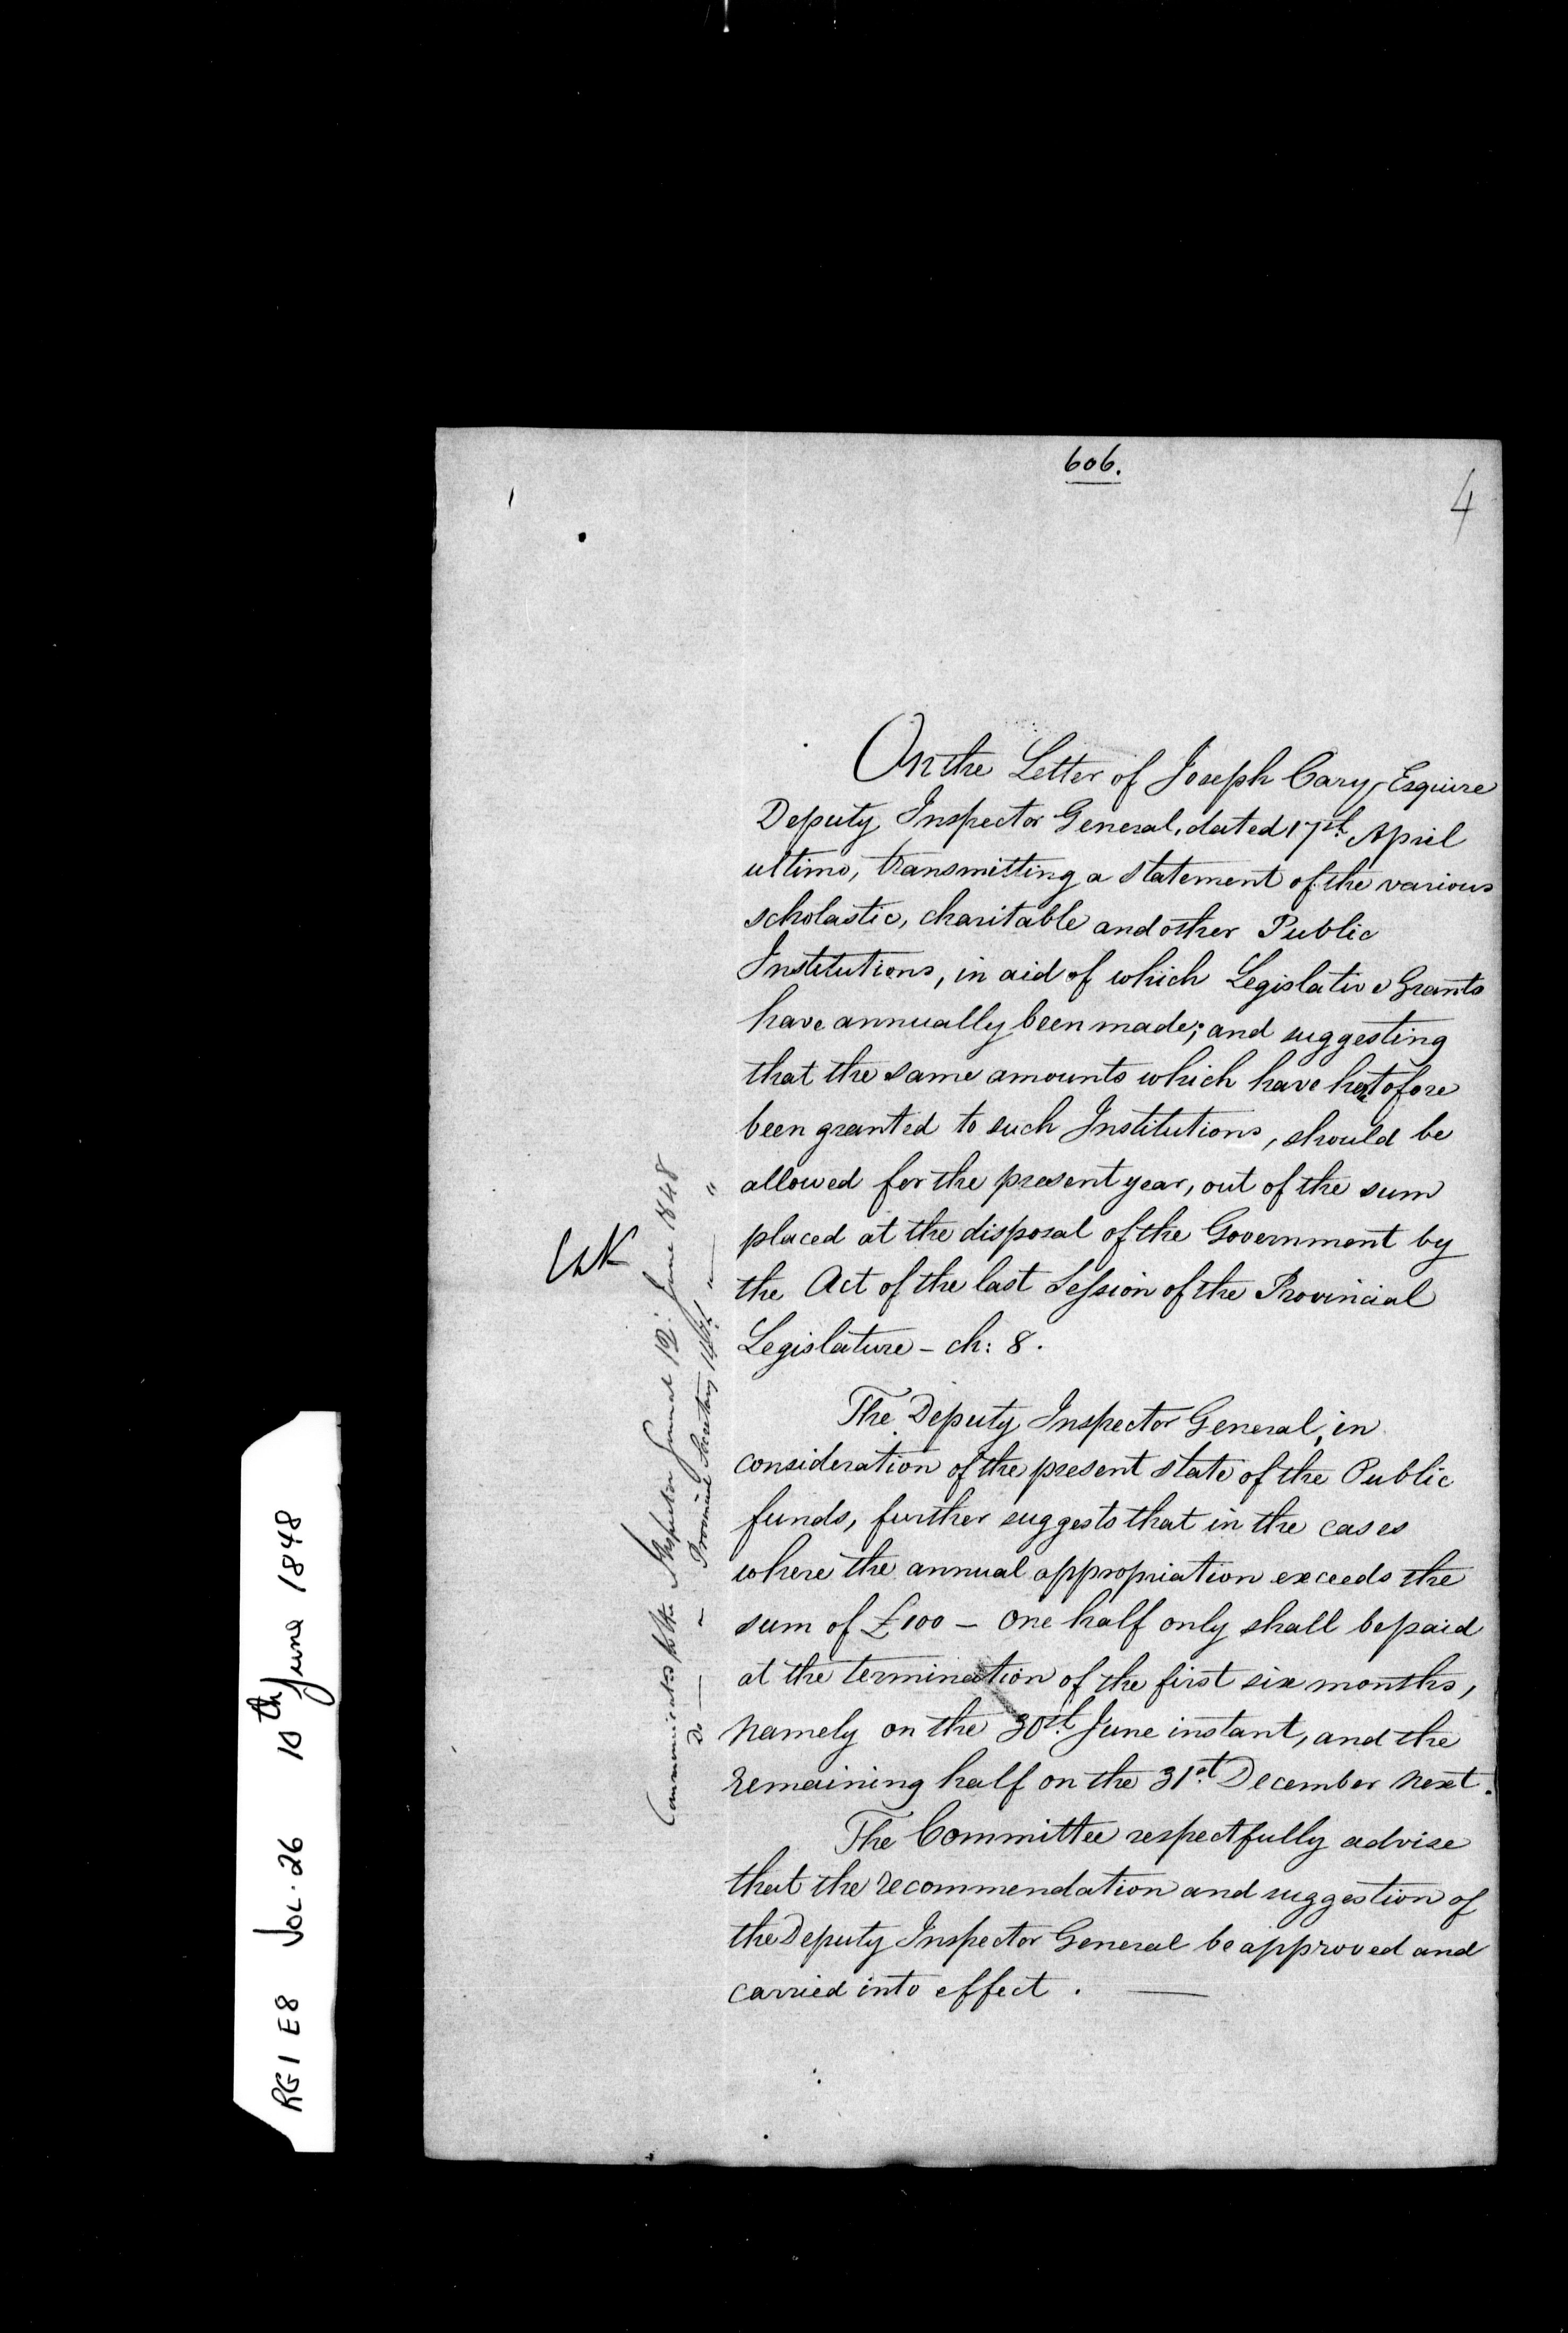 606.
4
On the Letter of Joseph Cary, Esquire
Deputy Inspector General, dated 17th April
ultimo, transmitting a statement of the various
scholastic, charitable and other Public
Institutions, in aid of which Legislative Grants
have annually been made; and suggesting
that the same amounts which have hertofore
been granted to such Institutions, should be
allowed for the present year, out of the sum
placed at the disposal of the Government by
the Act of the last Session of the Provincial
Legislature - ch: 8.
The Deputy Inspector General, in
consideration of the present state of the Public
funds, further suggests that in the cases
where the annual appropriation exceeds the
sum of £100 - one half only shall be paid
at the termination of the first six months,
namely on the 30th June instant, and the
remaining half on the 31st December next.
The Committee respectfully advise
that the recommendation and suggestion of
the Deputy Inspector General be approved and
carried into effect. —
Communicated to the Inspector General 12. June 1848
Do — " Provincial Secretary 14th " — "
RG1 E8 VOL. 26 10th June 1848